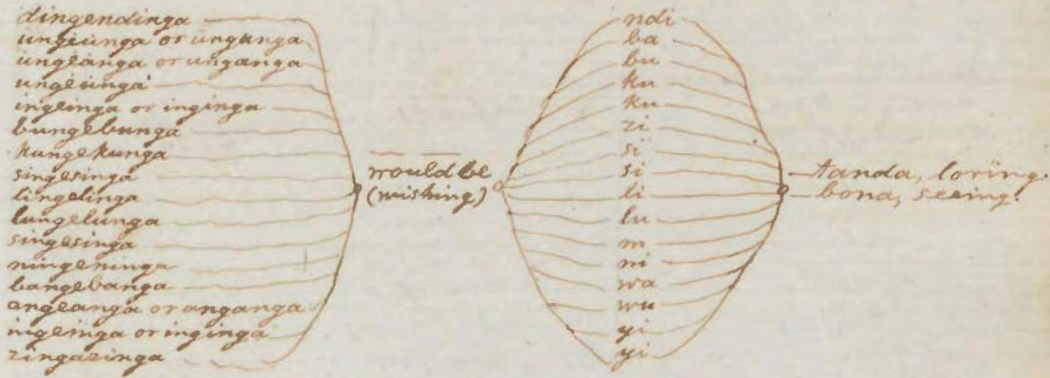 dingendinga
ungeunga or unganga
ungeanga or unganga
ungeunga
ingeinga or inginga
bungebunga
kungekunga
singesinga
lingelinga
lungelunga
singesinga
ningeninga
bangebanga
engeanga or anganga
ingeinga or inginga
zingazinga
would be
(wishing)
ndi
ba
bu
ku
ku
zi
si
si
li
lu
m
ni
wa
wu
yi
yi
tanda, loving.
bona, seeing.